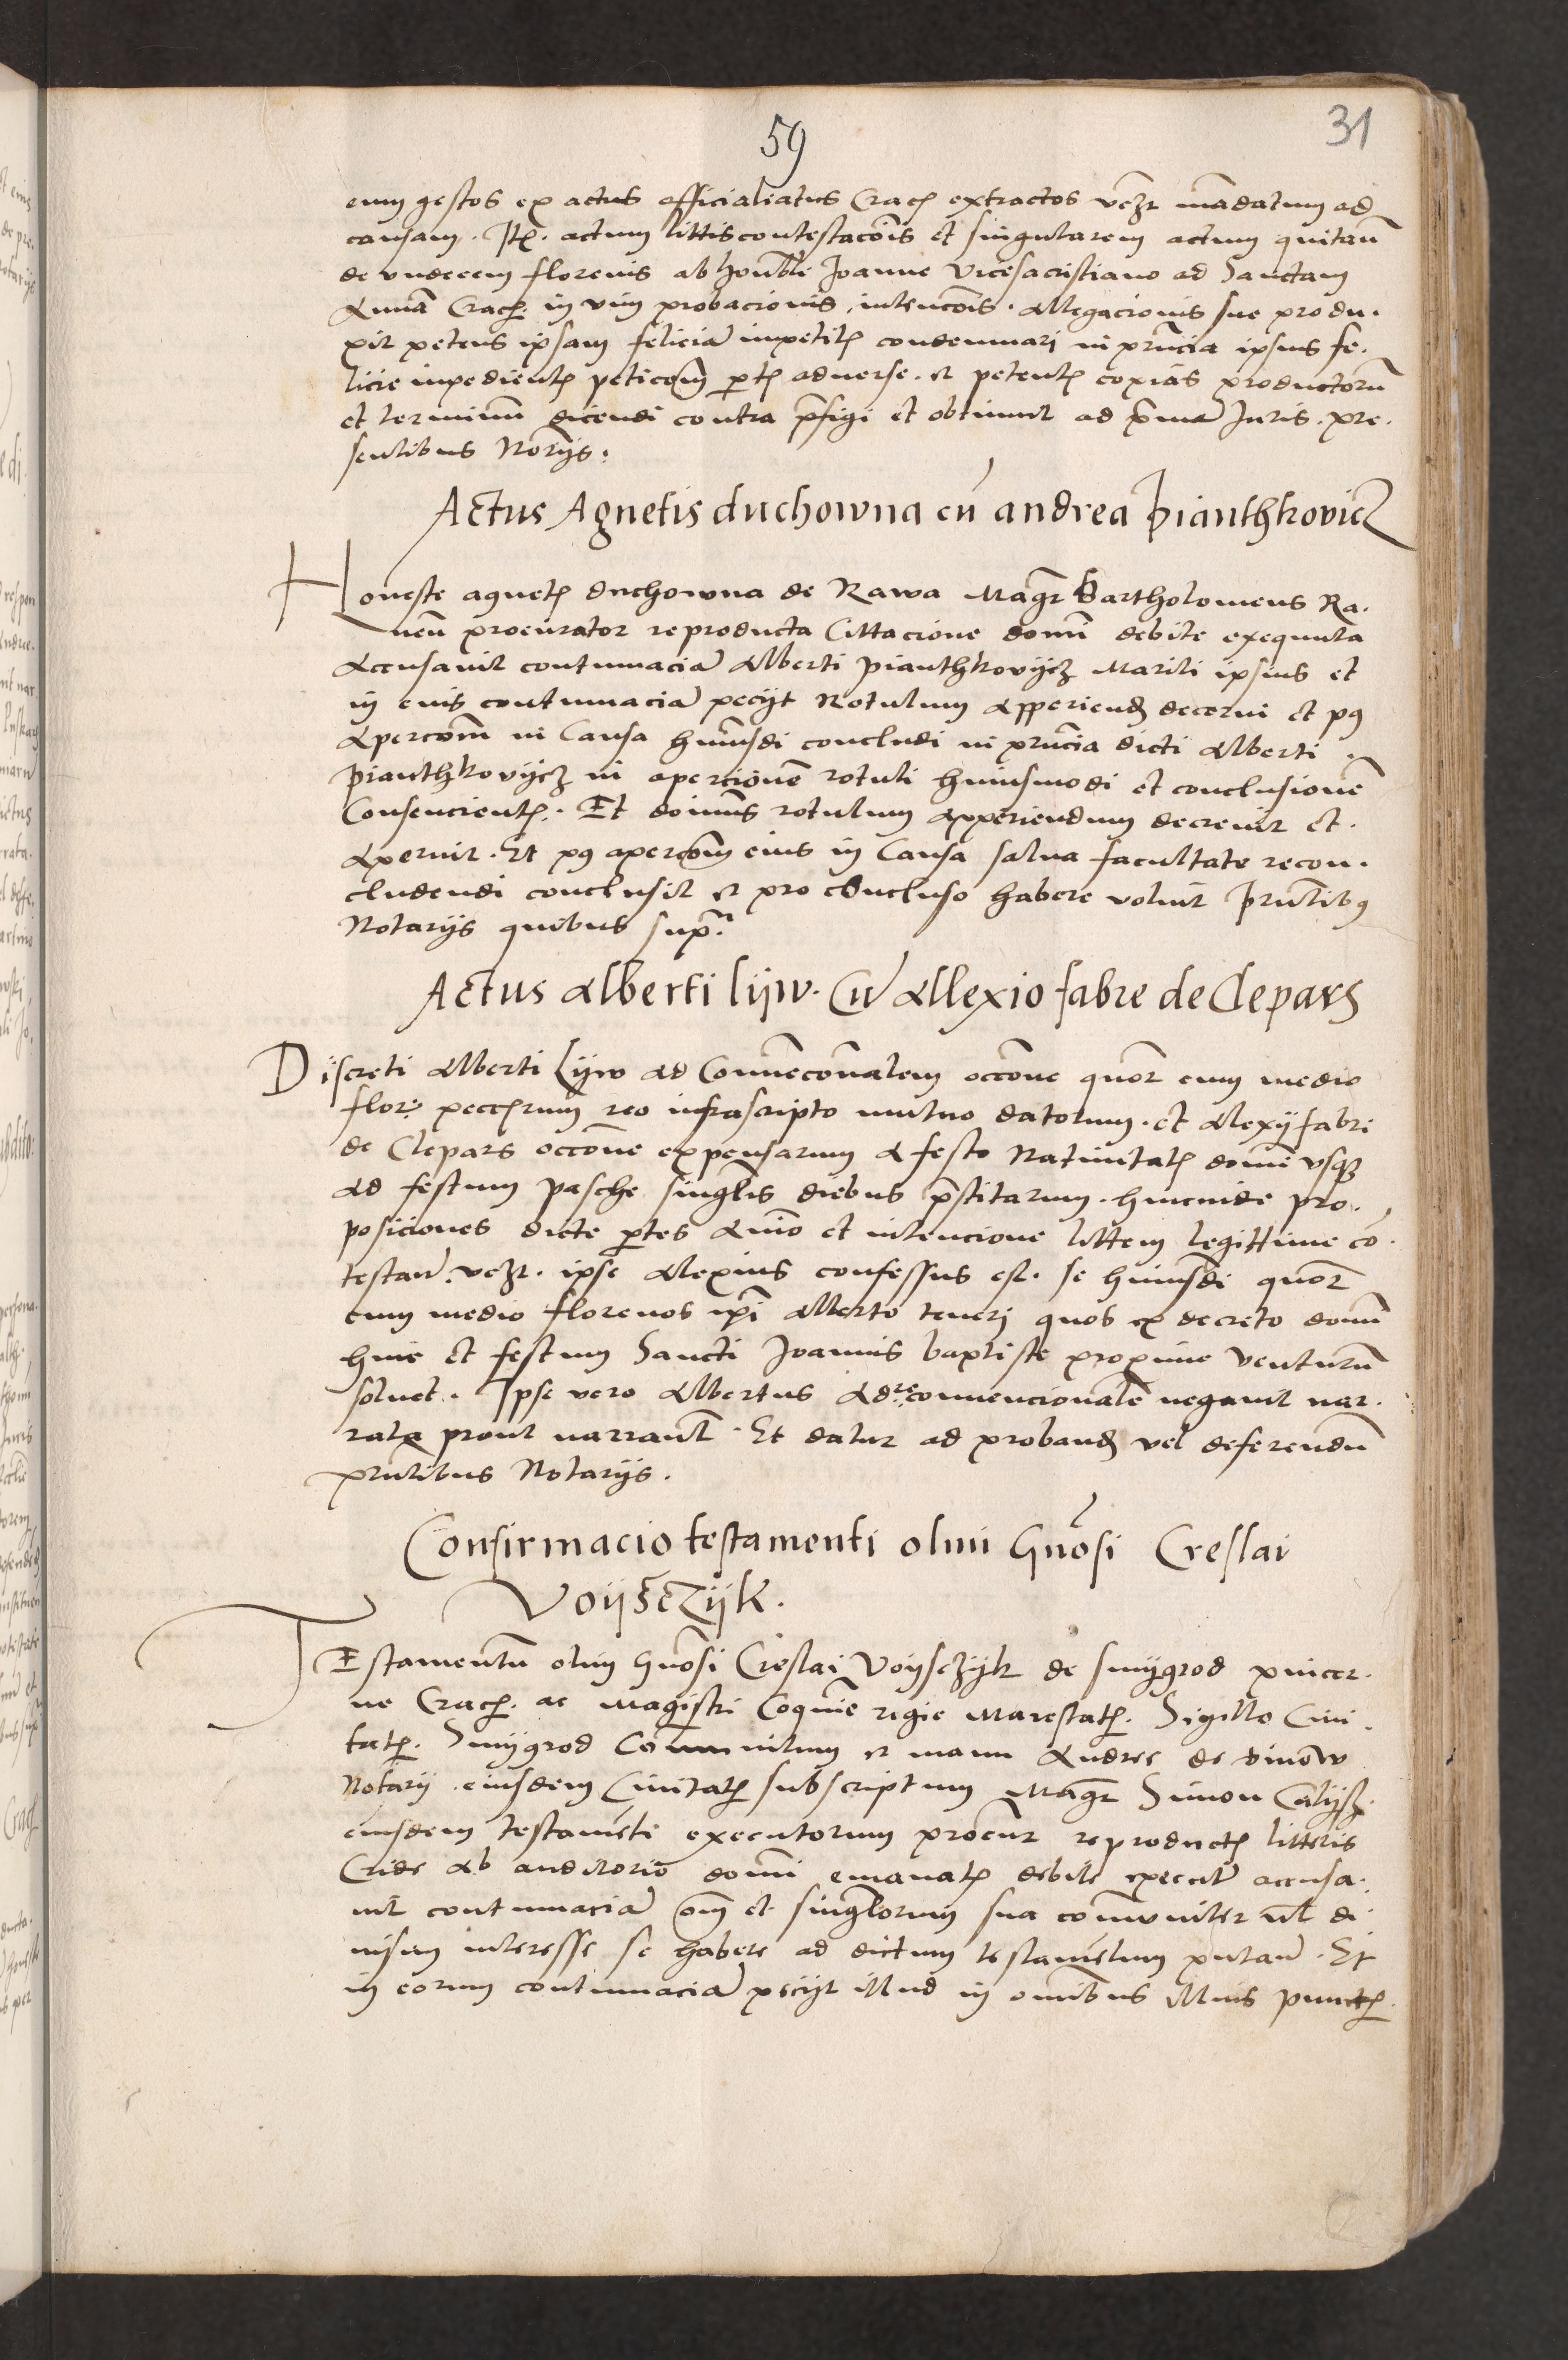 59
31
eum gestos ex actus officialiatus Crac̃ extractos vcz̃ mãdatum ad
causam. Itẽ. actum littiscontestacõis et singularem actum quitañ
de vndecem florenis ab honõbli Joanne Vicesacristiano ad Sanctam
Annã Crac̃. in vim probacionis, intencõis. Allegacionis sue produ.
xit petens ipsam feliciã impetit̃ condemnari in pñcia ipsius fe.
licie impedient̃ peticõm ptĩs aduerse. et petent̃ copias productorũ
et terminũ dicendi contra p̃figi et obtinuit ad p̃mã Juris. pre.
sentibus Norijs.
Actus Agnetis duchowna cũ andrea Pianthkovicz
Honeste agnet̃ duchowna de Rawa Mag̃r Bartholomeus Ra.
uen̄ procurator reproducta Cittacione domĩ debite exequuta
Accusauit contumaciã Alberti pianthkovijcz Mariti ipsius et
in eius contumaciã pecijt Rotulum Apperiend̃ decerni et p9
Apercõm in Causa huiusdi concludi in pñcia dicti Alberti
Pianthkovijcz in apercionẽ rotuli huiusmodi et conclusionẽ
Consencient̃. Et domiñs rotulum Apperiendum decreuit et.
Aperuit. Et p9 apercõm eius in Causa salua facultate recon.
cludendi conclusit et pro cõncluso habere voluit Pñtib9
Notarijs quibus sup̃.
Actus Alberti lijw. Cũ Allexio fabre de Clepars
Discreti Alberti Lijw Ad Conuẽcõnalem occõne quõr cum medio
flor̃ pecc̃iarum reo infrascripto mutuo datorum. et Alexij fabri
de Clepars occõne expensarum A festo Natiuitat̃ domĩ vsq̃
Ad festum pasche singlĩs diebus p̃stitarum. hincinde pro.
posiciones dicte p̃tes Animo et intencione littem legittime cõ.
testañ. vcz̃. ipse Alexius confessus est. se huiusdi quõr
cum medio florenos ip̃i Alberto teneri quos ex decreto domĩ
hinc et festum Sancti Joannis baptiste proxime Venturũ
soluet. Ipse vero Albertus Ad reconuencionalẽ negauit nar.
rata prout narrant̃. Et datur ad proband̃ vel deferendũ
pñtibus Notarijs.
Confirmacio testamenti olim Gñosi Creslai
Voijsczijk.
TEstamentũ olim Gñosi Creslai Voijsczijk de Smijgrod pincer.
ne Crac̃. ac Magistri Coquiñe regie Maiestat̃. Sigillo Ciui.
tat̃. Smijgrod Comunitum et manu Andree de
Notarij eiusdem Ciuitat̃ subscriptum Mag̃r Simon
eiusdem testamẽti executorum procur̃ reproduct̃ litteris
Cride Ab auditorio domĩ emanat̃ debite execut̃ accusa.
uit contumaciã om̃ et singlõrum sua com̃uniter vel̃ di
uisim interesse se habere ad dictum testamẽtum putañ. Et
in eorum contumaciã pecijt illud in omñibus illius punct̃.